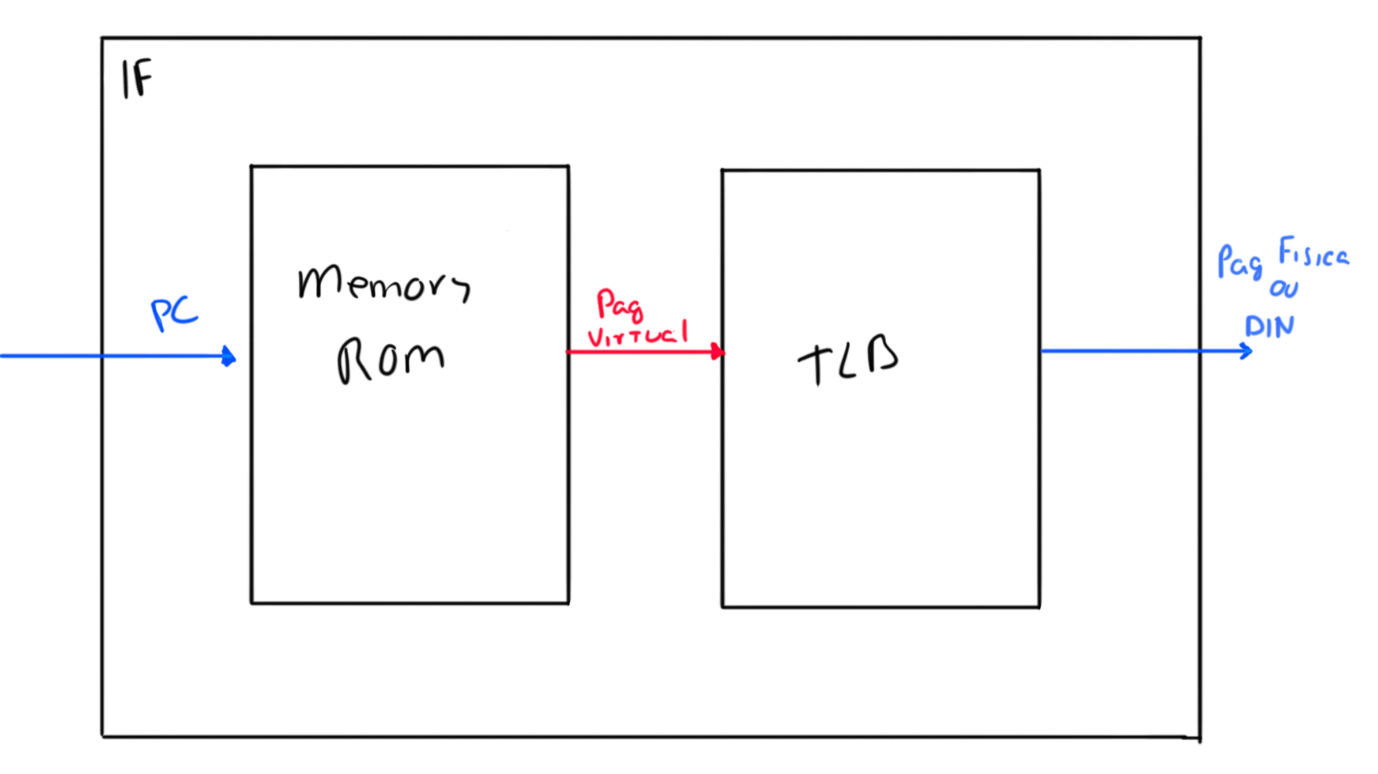 IF
PC
Memory
ROM
Pag
Virtual
TLB
Pag Fisica
ou
DIN